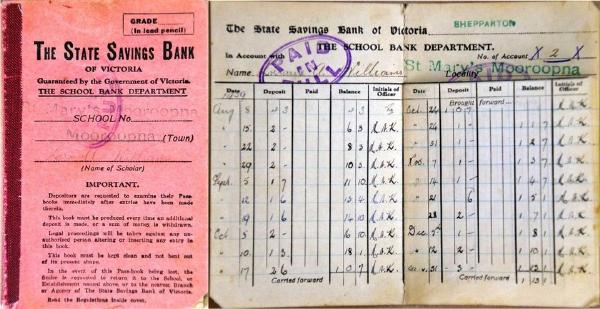 GRADE
(In lead pencil)
THE STATE SAVINGS BANK
OF VICTORIA
Guaranteed by the Government of Victoria.
THE SCHOOL BANK DEPARTMENT
Mary's Mooroopna
SCHOOL No.
Mooroopna (Town)
(Name of Scholar)
IMPORTANT.
Depositors are requested to examine their Pass-
books immediately after entries have been made
therein.
This book must be produced every time an additional
deposit is made, or a sum of money is withdrawn.
Legal proceedings will be taken against any un-
authorised person altering or inserting any entry in
this book.
This book must be kept clean and not bent out
of its present shape.
In the event of this Pass-book being lost, the
finder is requested to return it to the School, or
Establishment named above, or to the nearest Branch
or Agency of The State Savings Bank of Victoria.
Read the Regulations inside cover.
SHEPPARTON
The State Savings Bank of Victoria.
THE SCHOOL BANK DEPARTMENT.
In Account with
No. of Account X 2 X
PAID IN FULL
Name Williams
Locality
St Mary's Mooroopna
Date Deposit Paid Balance Initials of Officer Date Deposit Paid Balance Initials of Officer
Brought forward
Aug 8
15 2 - 6 3
22 2 - 8 3
29 2 - 10 3
Sept. 5 1 7 11 10
12 1 6 13 4
19 1 6 14 10
Oct 5 2 - 16 10
10 1 3 18 1
17 2 6 1 0 7
Carried forward
Oct 24
31 1 -
Nov 7 1 -
14 1 -
21 6
28 2 - 1 7 1
Dec 5 1 - 1 8 1
12 2 - 1 10 1
Carried forward